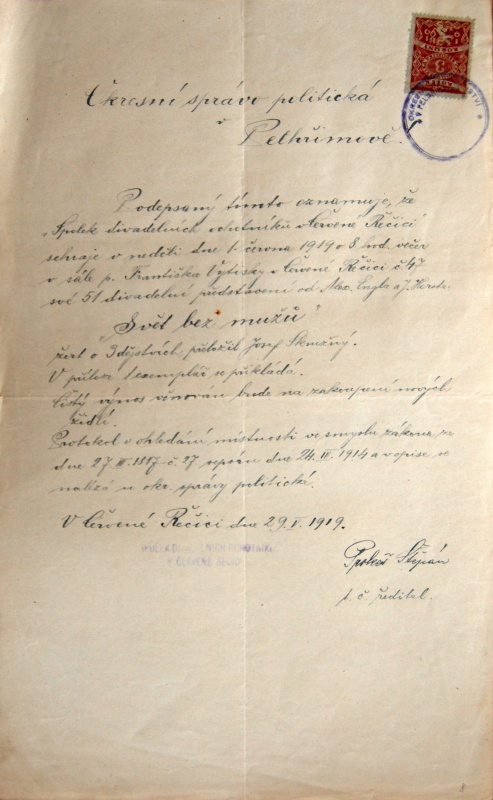 Okresní správo politická
v
Pelhřimově.
Podepsaný tímto oznamuje, že
"Spolek divadelních ochotníků v Červené Řečici"
sehraje v neděli dne 1. června 1919 o 8. hod. večer
v sále p. Františka Vytisky v Červené Řečici č 47
své 51 divadelní představení od Max. Engla a J. Horsta.
"Svět bez mužů"
žert o 3 dějstvích, přeložil Josef Skružný.
V příloze 1 exemplář se přikládá.
Čistý výnos věnován bude na zakoupení nových
židlí.
Protokol o ohledání místnosti ve smyslu zákona ze
dne 27. III. 1887 č. 27 sepsán dne 24. II. 1914 a v opise se
nalézá u okr. správy politické.
V Červené Řečici dne 29. V. 1919.
SPOLEK DIVADELNICH OCHOTNÍKŮ
V ČERVENÉ ŘEČICI
Štěpán
t. č. ředitel.